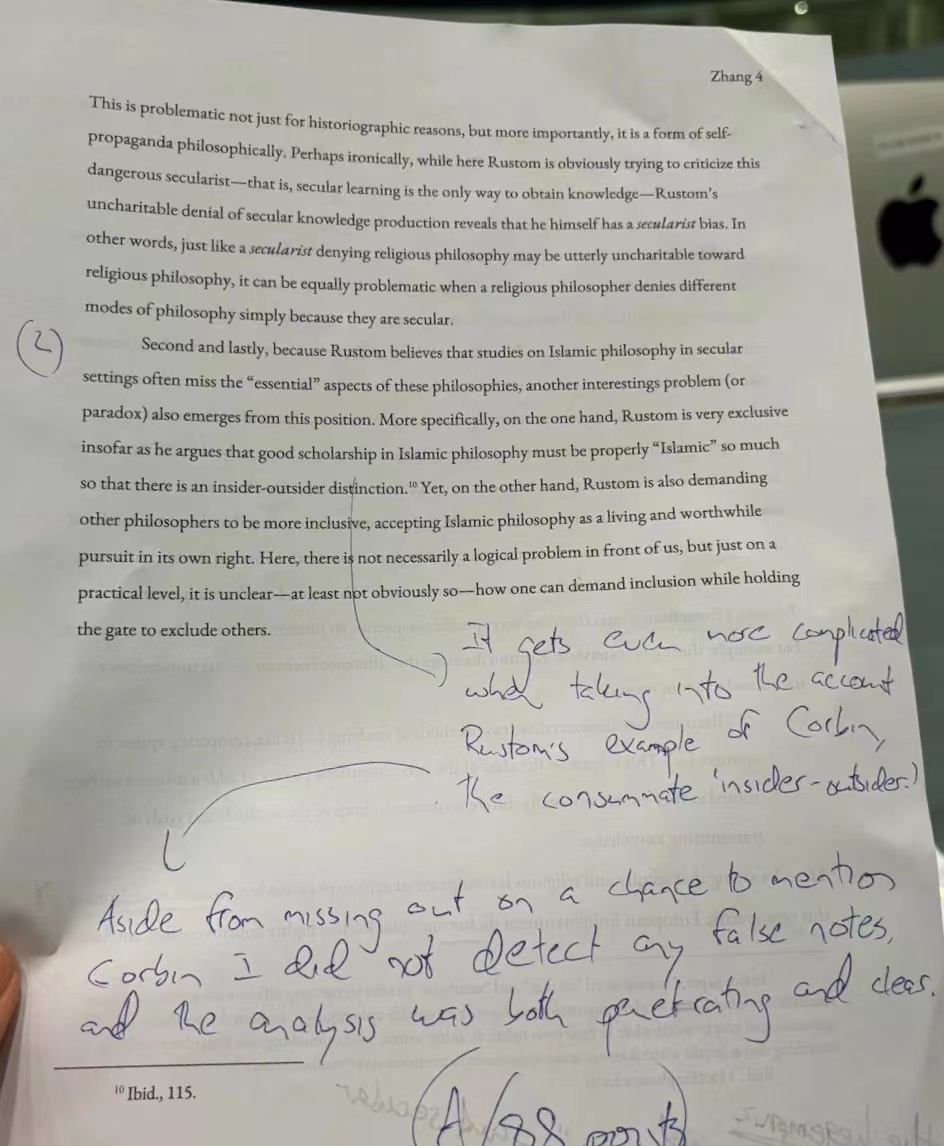 Zhang 4
This is problematic not just for historiographic reasons, but more importantly, it is a form of self-
propaganda philosophically. Perhaps ironically, while here Rustom is obviously trying to criticize this
dangerous secularist—that is, secular learning is the only way to obtain knowledge—Rustom's
uncharitable denial of secular knowledge production reveals that he himself has a secularist bias. In
other words, just like a secularist denying religious philosophy may be utterly uncharitable toward
religious philosophy, it can be equally problematic when a religious philosopher denies different
modes of philosophy simply because they are secular.
2
Second and lastly, because Rustom believes that studies on Islamic philosophy in secular
settings often miss the “essential” aspects of these philosophies, another interestings problem (or
paradox) also emerges from this position. More specifically, on the one hand, Rustom is very exclusive
insofar as he argues that good scholarship in Islamic philosophy must be properly “Islamic” so much
so that there is an insider-outsider distinction.¹⁰ Yet, on the other hand, Rustom is also demanding
other philosophers to be more inclusive, accepting Islamic philosophy as a living and worthwhile
pursuit in its own right. Here, there is not necessarily a logical problem in front of us, but just on a
practical level, it is unclear—at least not obviously so—how one can demand inclusion while holding
the gate to exclude others.
It gets even more complicated
when taking into the account
Rustom's example of Corbin,
the consummate 'insider-outsider.'
Aside from missing out on a chance to mention
Corbin I did not detect any false notes,
and the analysis was both penetrating and clear.
¹⁰ Ibid., 115.
(A/88 points)